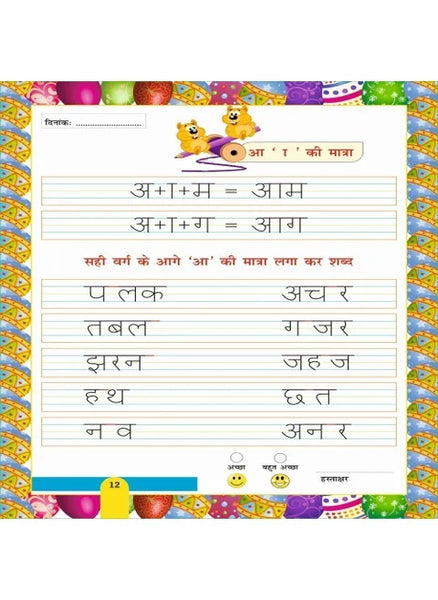 दिनांकः ............................
आ ‘ ा ’ की मात्रा
अ+ा+म = आम
अ+ा+ग = आग
सही वर्ग के आगे ‘आ’ की मात्रा लगा कर शब्द
प लक अच र
तबल ग जर
झरन जह ज
ह थ छ त
न व अन र
अच्छा बहुत अच्छा
हस्ताक्षर
12